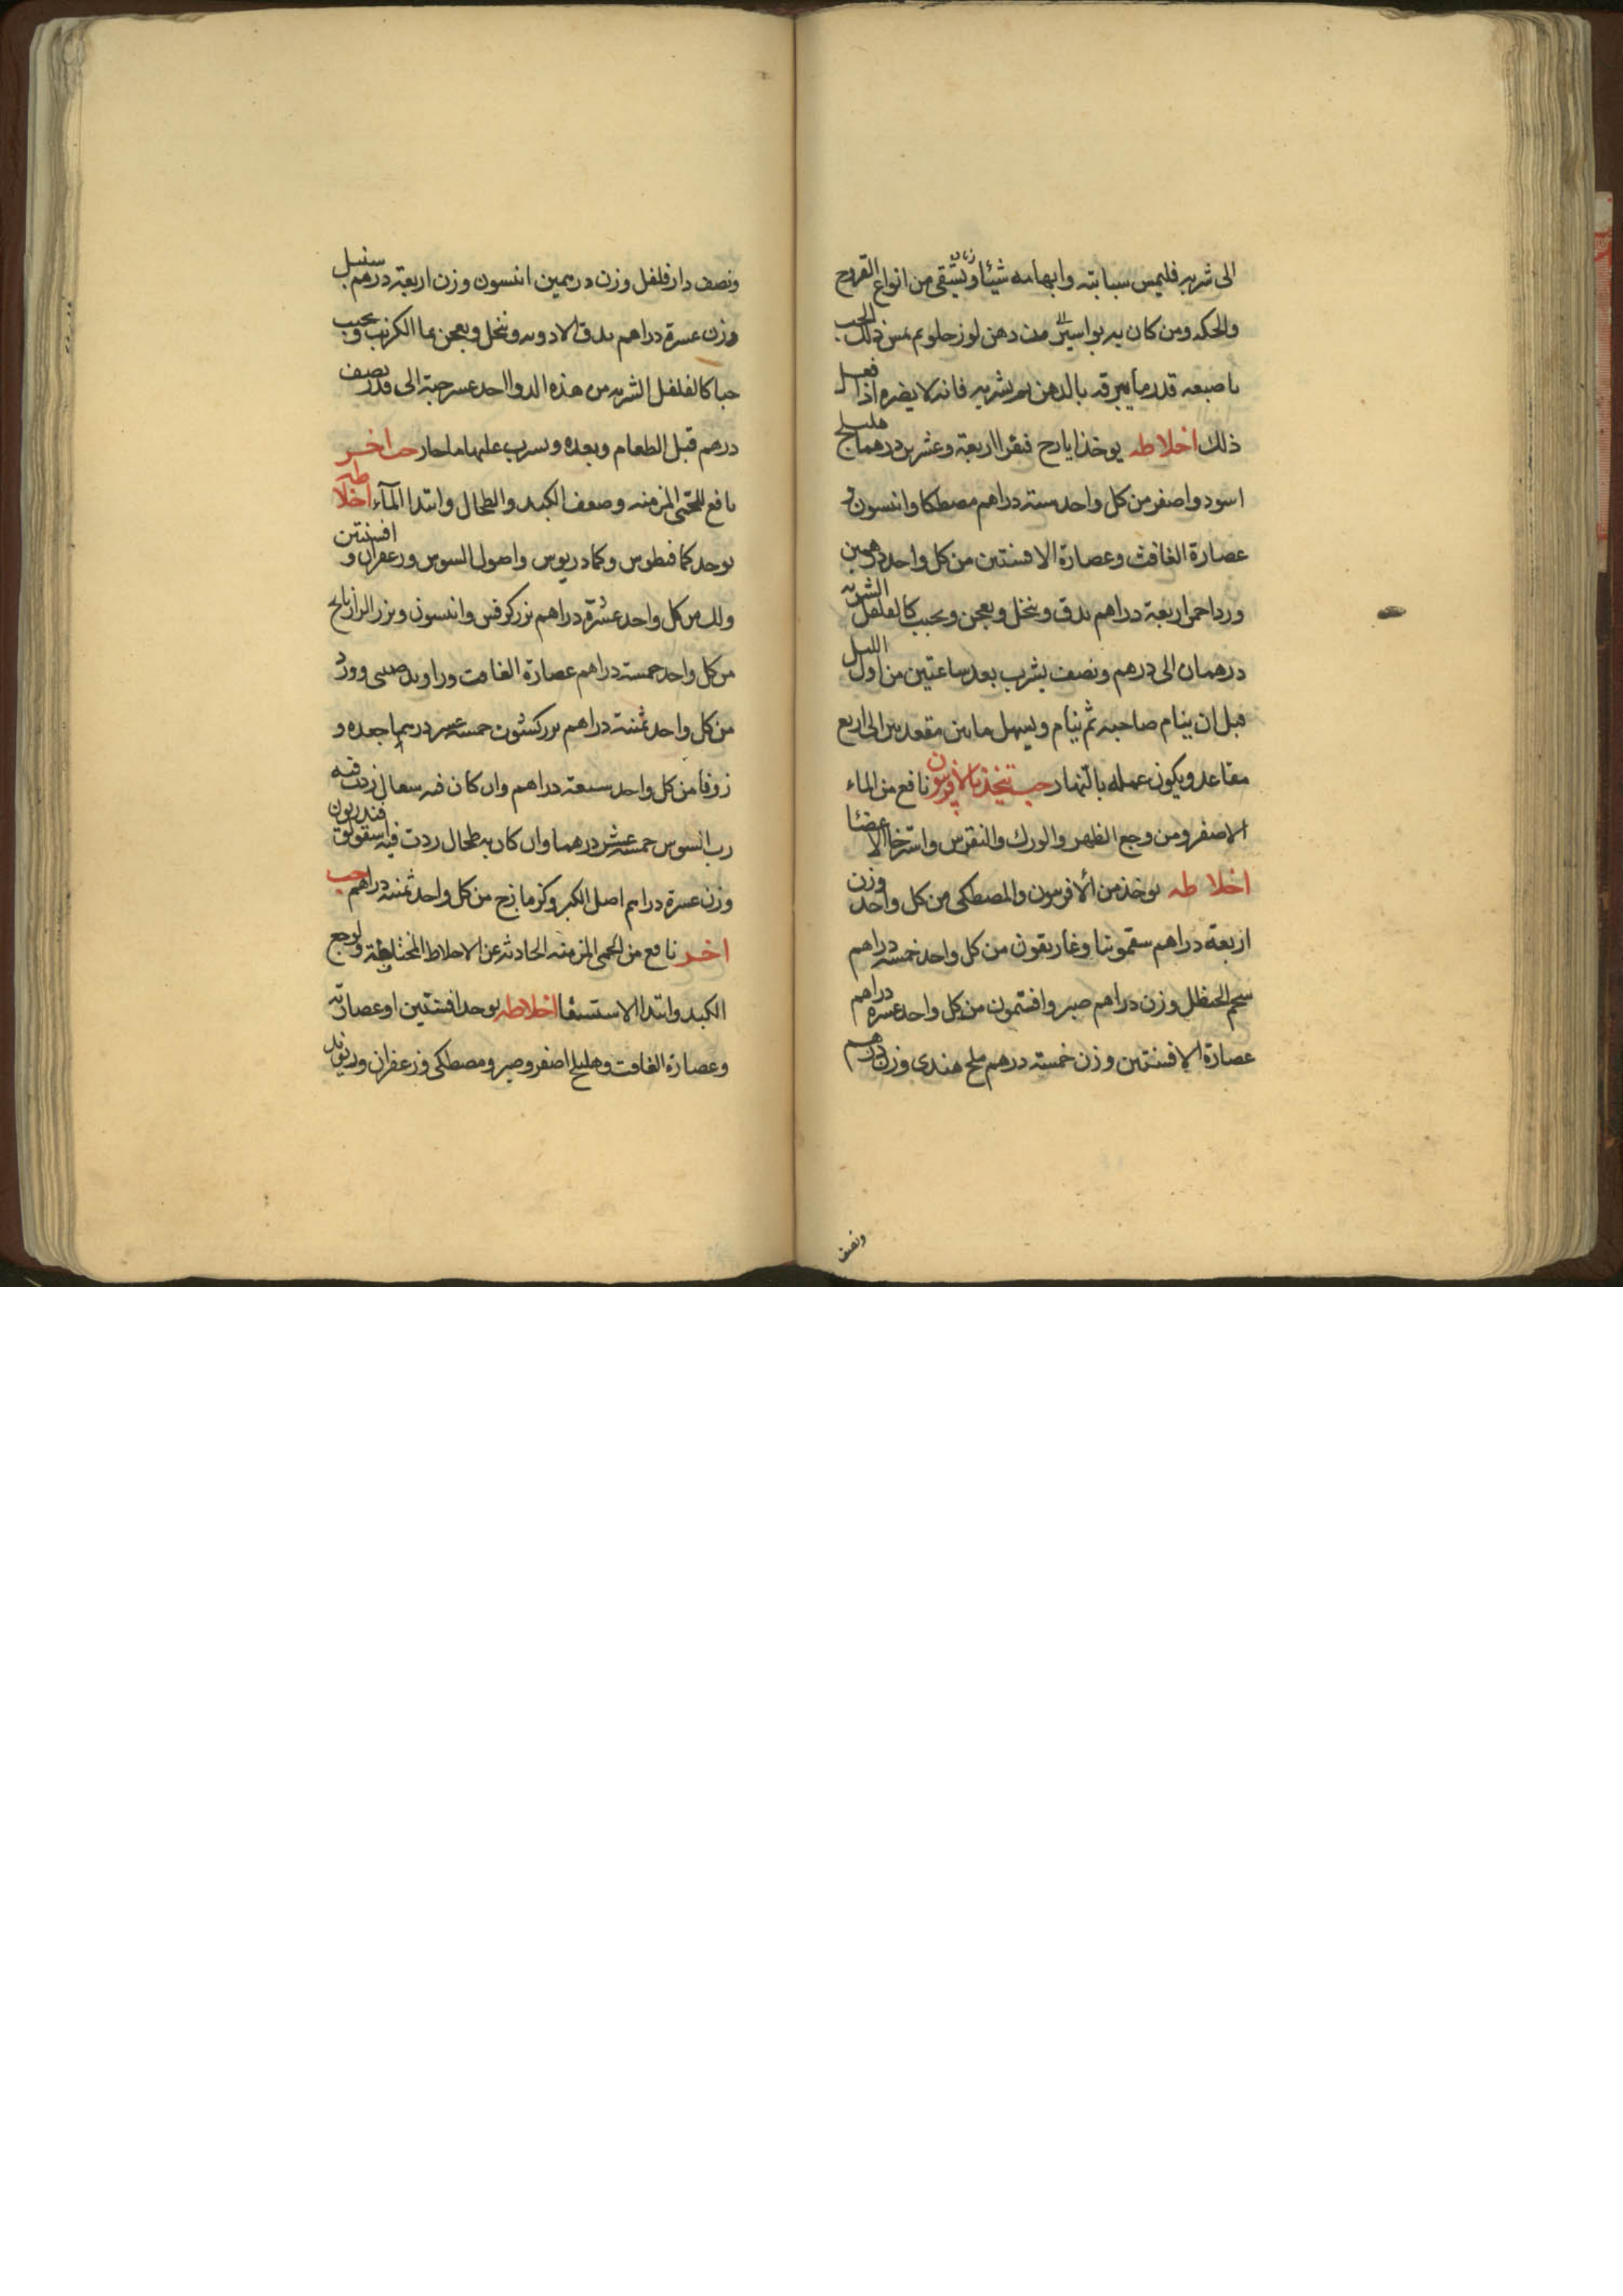 الى شربه فليمس سبابته وابهامه شيئا وينتقى من انواع القروح
والحكه ومن كان به بواسير من دهن لوز حلو يمس ذلك الحب
باصبعه قدر ما يبرقه بالدهن ثم يشربه فانه لا يضره اذا فعل
ذلك اخلاطه يوخذ ايارج فيقرا اربعة وعشرين درهما هليلج
اسود واصفر من كل واحد ستة دراهم مصطكا وانيسون و
عصارة الغافث وعصارة الافسنتين من كل واحد درهمين
ورد احمر اربعة دراهم يدق وينخل ويعجن ويحبب كالفلفل الشربه
درهمان الى درهم ونصف يشرب بعد ساعتين من اول الليل
قبل ان ينام صاحبه ثم ينام ويسهل ما بين مقعدين الى اربع
مقاعد ويكون عمله بالنهار حب يتخذ بالافربيون نافع من الماء
الاصفر ومن وجع الظهر والورك والنقرس واسترخا الاعضا
اخلاطه يوخذ من الافربيون والمصطكى من كل واحد وزن
اربعة دراهم سقمونيا وغاريقون من كل واحد خمسة دراهم
شحم الحنظل وزن دراهم صبر وافتيمون من كل واحد عشره دراهم
عصارة الافسنتين وزن خمسة درهم ملح هندى وزن درهم
ونصف
ونصف دار فلفل وزن درهمين انيسون وزن اربعة درهم سنبل
وزن عشرة دراهم يدق الادويه وينخل ويعجن بما الكرنب ويحبب
حبا كالفلفل الشربه من هذه الدوا احد عشر حبة الى قدر نصف
درهم قبل الطعام وبعده ويشرب عليها ما حار حب اخر
نافع للحمى المزمنه وضعف الكبد والطحال وابتدا المآء اخلاطه
يوخذ كمافيطوس وكمادريوس واصول السوس وزعفران وافسنتين
ولك من كل واحد عشرة دراهم بزر كرفس وانيسون وبزر الرازيانج
من كل واحد خمسة دراهم عصارة الغافت وراوند صينى وورد
من كل واحد ثمنية دراهم بزر كشوث خمسة عشر درهما جعده و
زوفا من كل واحد سبعة دراهم وان كان فيه سعال زدت فيه
رب السوس خمسة عشر درهما وان كان به طحال زدت فيه اسقولوقندريون
وزن عشرة دراهم اصل الكبر وكزمازج من كل واحد ثمنية دراهم حب
اخر نافع من الحمى المزمنه الحادثه عن الاخلاط المختلطة ولوجع
الكبد وابتدا الاستسقا اخلاطه يوخذ افسنتين او عصارته
وعصارة الغافت وهليلج اصفر وصبر ومصطكى وزعفران وريوند